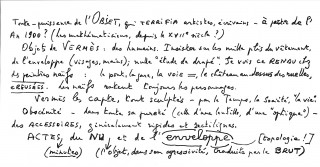 Toute-puissance de l'OBJET, qui TERRIFIA artistes, écrivains - à partir de l'
An 1900? (les mathématiciens, depuis le XVIIe siècle?)
Objet de VERMÈS: des humains. Insister sur les mille plis du vêtement,
de l'enveloppe (visages, mains); cette "étude de drapé". Je vois ce RENDU chez
les peintres naïfs: le pont, la gare, la voie =, le château au-dessus des ruelles
CREUSÉES. Les naïfs ratent toujours les personnages.
Vermès les capte, tout sculptés - par le Temps, la Société, "la vie".
Obscénité - dans toute sa pureté (celle d'une lentille, d'une "optique") -
des ACCESSOIRES, généralement rigides et
ACTES, du NU, et de l'enveloppe [topologie!]
(minutes) (l'objet, dans son agressivité, traduite par le BRUT)